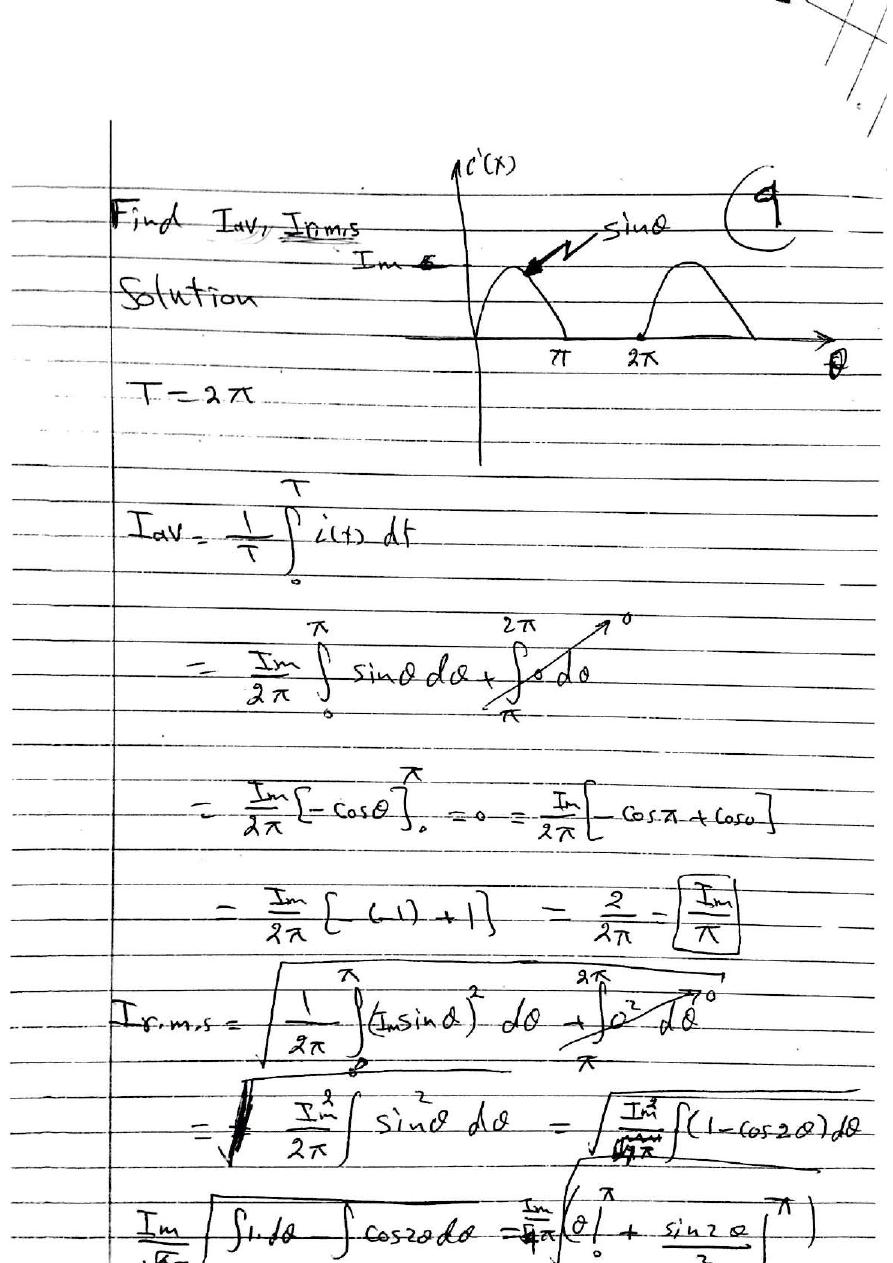 i(t)
9
Find Iav, Ir.m.s
sinθ
Im
Solution
π 2π θ
T = 2π
Iav = 1/T ∫₀ᵀ i(t) dt
= Im/2π ∫₀^π sinθ dθ + ∫_π^2π 0 dθ → 0
= Im/2π [-cosθ]₀^π = 0 = Im/2π [-cosπ + cos0]
= Im/2π [-(-1) + 1] = 2/2π = Im/π
Ir.m.s = √(1/2π ∫₀^π (Im sinθ)² dθ + ∫_π^2π 0² dθ → 0)
= √(Im²/2π ∫ sin²θ dθ) = √(Im²/4π ∫(1-cos2θ)dθ)
Im √(∫1.dθ - ∫cos2θdθ) = Im/4π √(θ|₀^π + sin2θ/2 |^π)